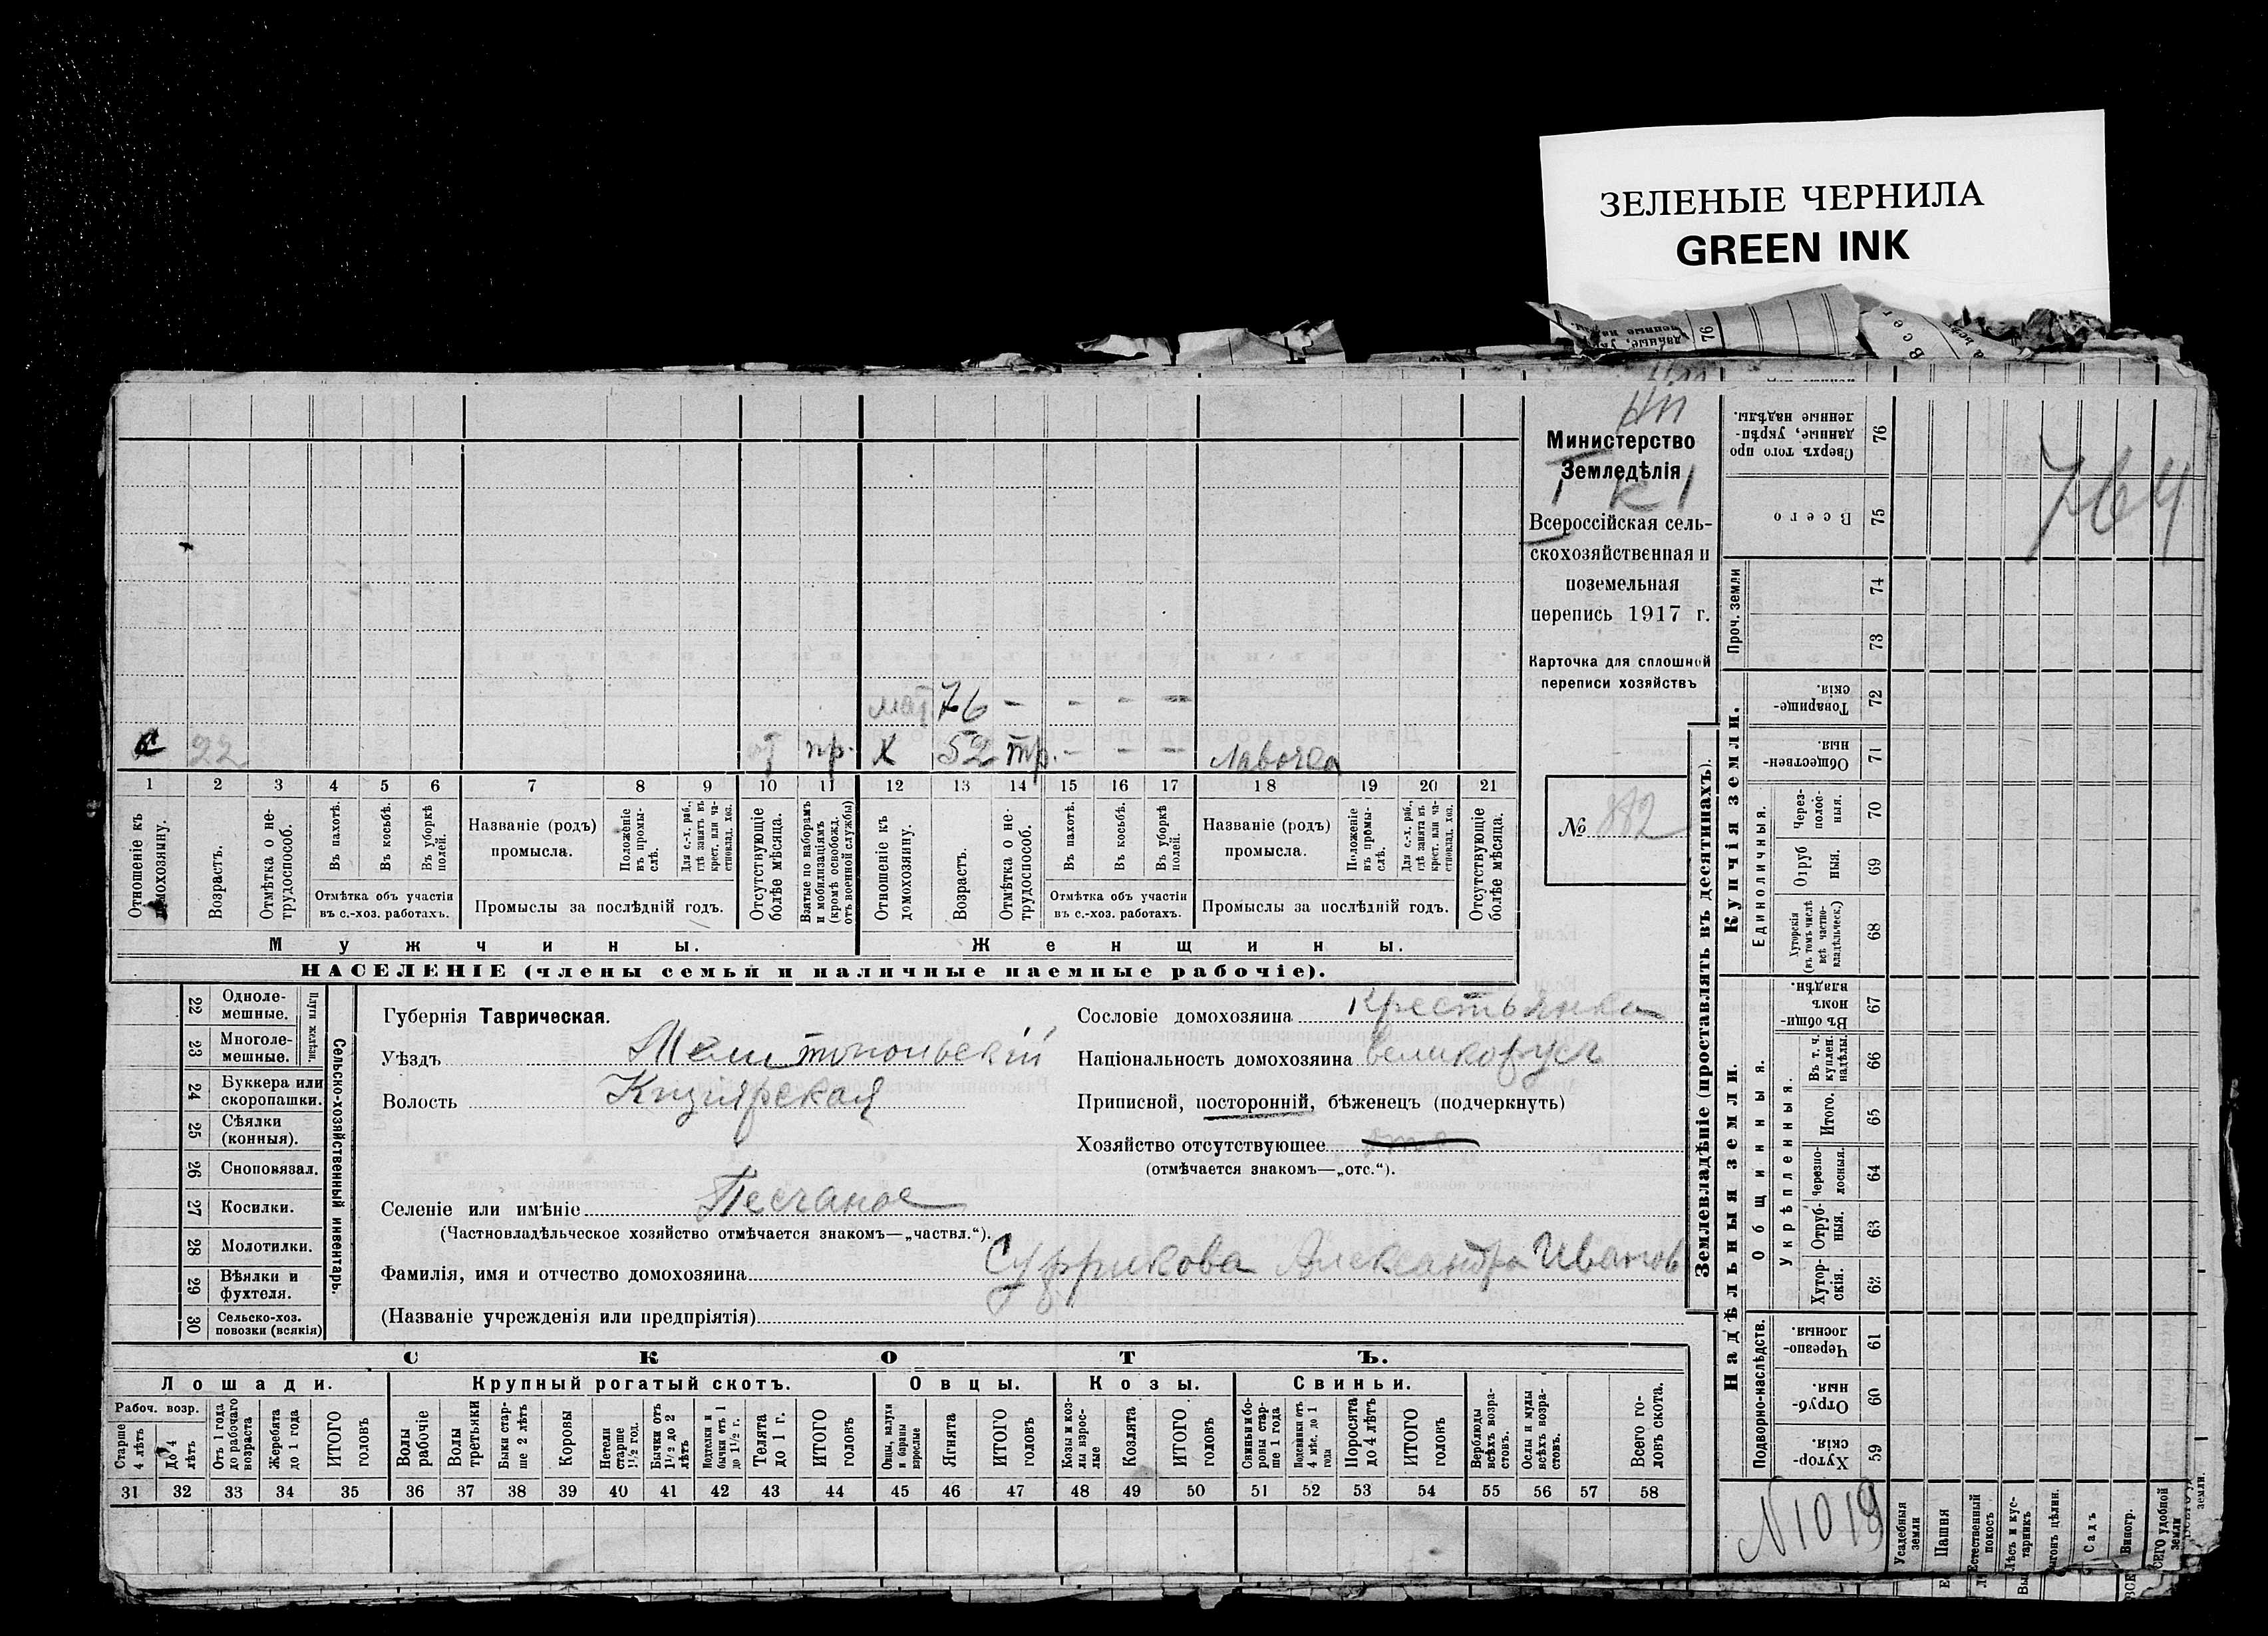 ЗЕЛЕНЫЕ ЧЕРНИЛА
GREEN INK
Министерство
Земледѣлія
Всероссійская сель-
скохозяйственная и
поземельная
перепись 1917 г.
Карточка для сплошной
переписи хозяйствъ
№ 882
764
мат. 76 - - - -
с 22 пр. х 52 тр. - - - Лавочка
1 2 3 4 5 6 7 8 9 10 11 12 13 14 15 16 17 18 19 20 21
Отношеніе къ домохозяину.
Возрастъ.
Отмѣтка о не-трудоспособ.
Въ пахотѣ.
Въ косьбѣ.
Въ уборкѣ полей.
Отмѣтка объ участіи
въ с.-хоз. работахъ.
Названіе (родъ)
промысла.
Положеніе въ промы-слѣ.
Для с.-х. раб., гдѣ занятъ въ крест. или ча-стновлад. хоз.
Промыслы за послѣдній годъ.
Отсутствующіе болѣе мѣсяца.
Взятые по наборамъ и мобилизаціямъ (кромѣ освобожд. отъ военной службы)
Отношеніе къ домохозяину.
Возрастъ.
Отмѣтка о не-трудоспособ.
Въ пахотѣ.
Въ косьбѣ.
Въ уборкѣ полей.
Отмѣтка объ участіи
въ с.-хоз. работахъ.
Названіе (родъ)
промысла.
Положеніе въ промы-слѣ.
Для с.-х. раб., гдѣ занята въ крест. или ча-стновлад. хоз.
Промыслы за послѣдній годъ.
Отсутствующіе болѣе мѣсяца.
Мужчины.
Женщины.
НАСЕЛЕНІЕ (члены семьи и наличные наемные рабочіе).
Сельско-хозяйственный инвентарь.
Плуги желѣзн.
22 Одноле-мешные.
23 Многоле-мешные.
24 Буккера или скоропашки.
25 Сѣялки (конныя).
26 Сноповязал.
27 Косилки.
28 Молотилки.
29 Вѣялки и фухтеля.
30 Сельско-хоз. повозки (всякія)
Губернія Таврическая.
Уѣздъ Мелитопольскій
Волость Кизіярская
Селеніе или имѣніе Песчаное
(Частновладѣльческое хозяйство отмѣчается знакомъ—„частвл.“).
Фамилія, имя и отчество домохозяина Александра Иванов
(Названіе учрежденія или предпріятія)
Сословіе домохозяина крестьянка
Національность домохозяина великорусс
Приписной, посторонній, бѣженецъ (подчеркнуть)
Хозяйство отсутствующее
(отмѣчается знакомъ—„отс.“).
СКОТЪ.
Лошади.
Крупный рогатый скотъ.
Овцы.
Козы.
Свиньи.
Рабоч. возр.
Старше 4 лѣтъ
До 4 лѣтъ
Отъ 1 года до рабочаго возраста
Жеребята до 1 года
ИТОГО головъ
Волы рабочіе
Волы третьяки
Быки стар-ше 2 лѣтъ
Коровы
Нетели старше 1½ год.
Бычки отъ 1½ до 2 лѣтъ
Подтелки и бычки отъ 1 до 1½ г.
Телята до 1 г.
ИТОГО головъ
Овцы, валухи и бараны взрослые
Ягнята
ИТОГО головъ
Козы и коз-лы взрос-лые
Козлята
ИТОГО головъ
Свиньи и бо-ровы стар-ше 1 года
Подсвинки отъ 4 мѣс. до 1 года
Поросята до 4 лѣтъ
ИТОГО головъ
Верблюды всѣхъ возра-стовъ.
Ослы и мулы всѣхъ возра-стовъ.
Всего го-ловъ скота.
31 32 33 34 35 36 37 38 39 40 41 42 43 44 45 46 47 48 49 50 51 52 53 54 55 56 57 58
Землевладѣніе (проставлять въ десятинахъ).
Надѣльныя земли.
Купчія земли.
Проч. земли
Подворно-наслѣдств.
Общинныя.
Укрѣпленныя.
Единоличныя.
76 Сверхъ того про данные, укрѣп-ленные надѣлы.
75 Всего
74
73
72 Товарище-скія.
71 Обществен-ныя
70 Через-полос-ныя.
69 Отруб ныя.
68 Хуторскія (въ томъ числѣ всѣ частно-владѣльческ.)
67 Въ общи-номъ владѣн.
66 Въ т. ч. куплен. надѣлы.
65 Итого.
64 Черезпо-лосныя.
63 Отруб-ныя.
62 Хутор-скія.
61 Черезпо-лосныя.
60 Отруб-ныя
59 Хутор-скія.
N 1019
Усадебныя земли
Пашня
Естественный покосъ
Лѣсъ и кус-тарникъ
Садъ
Виногр.